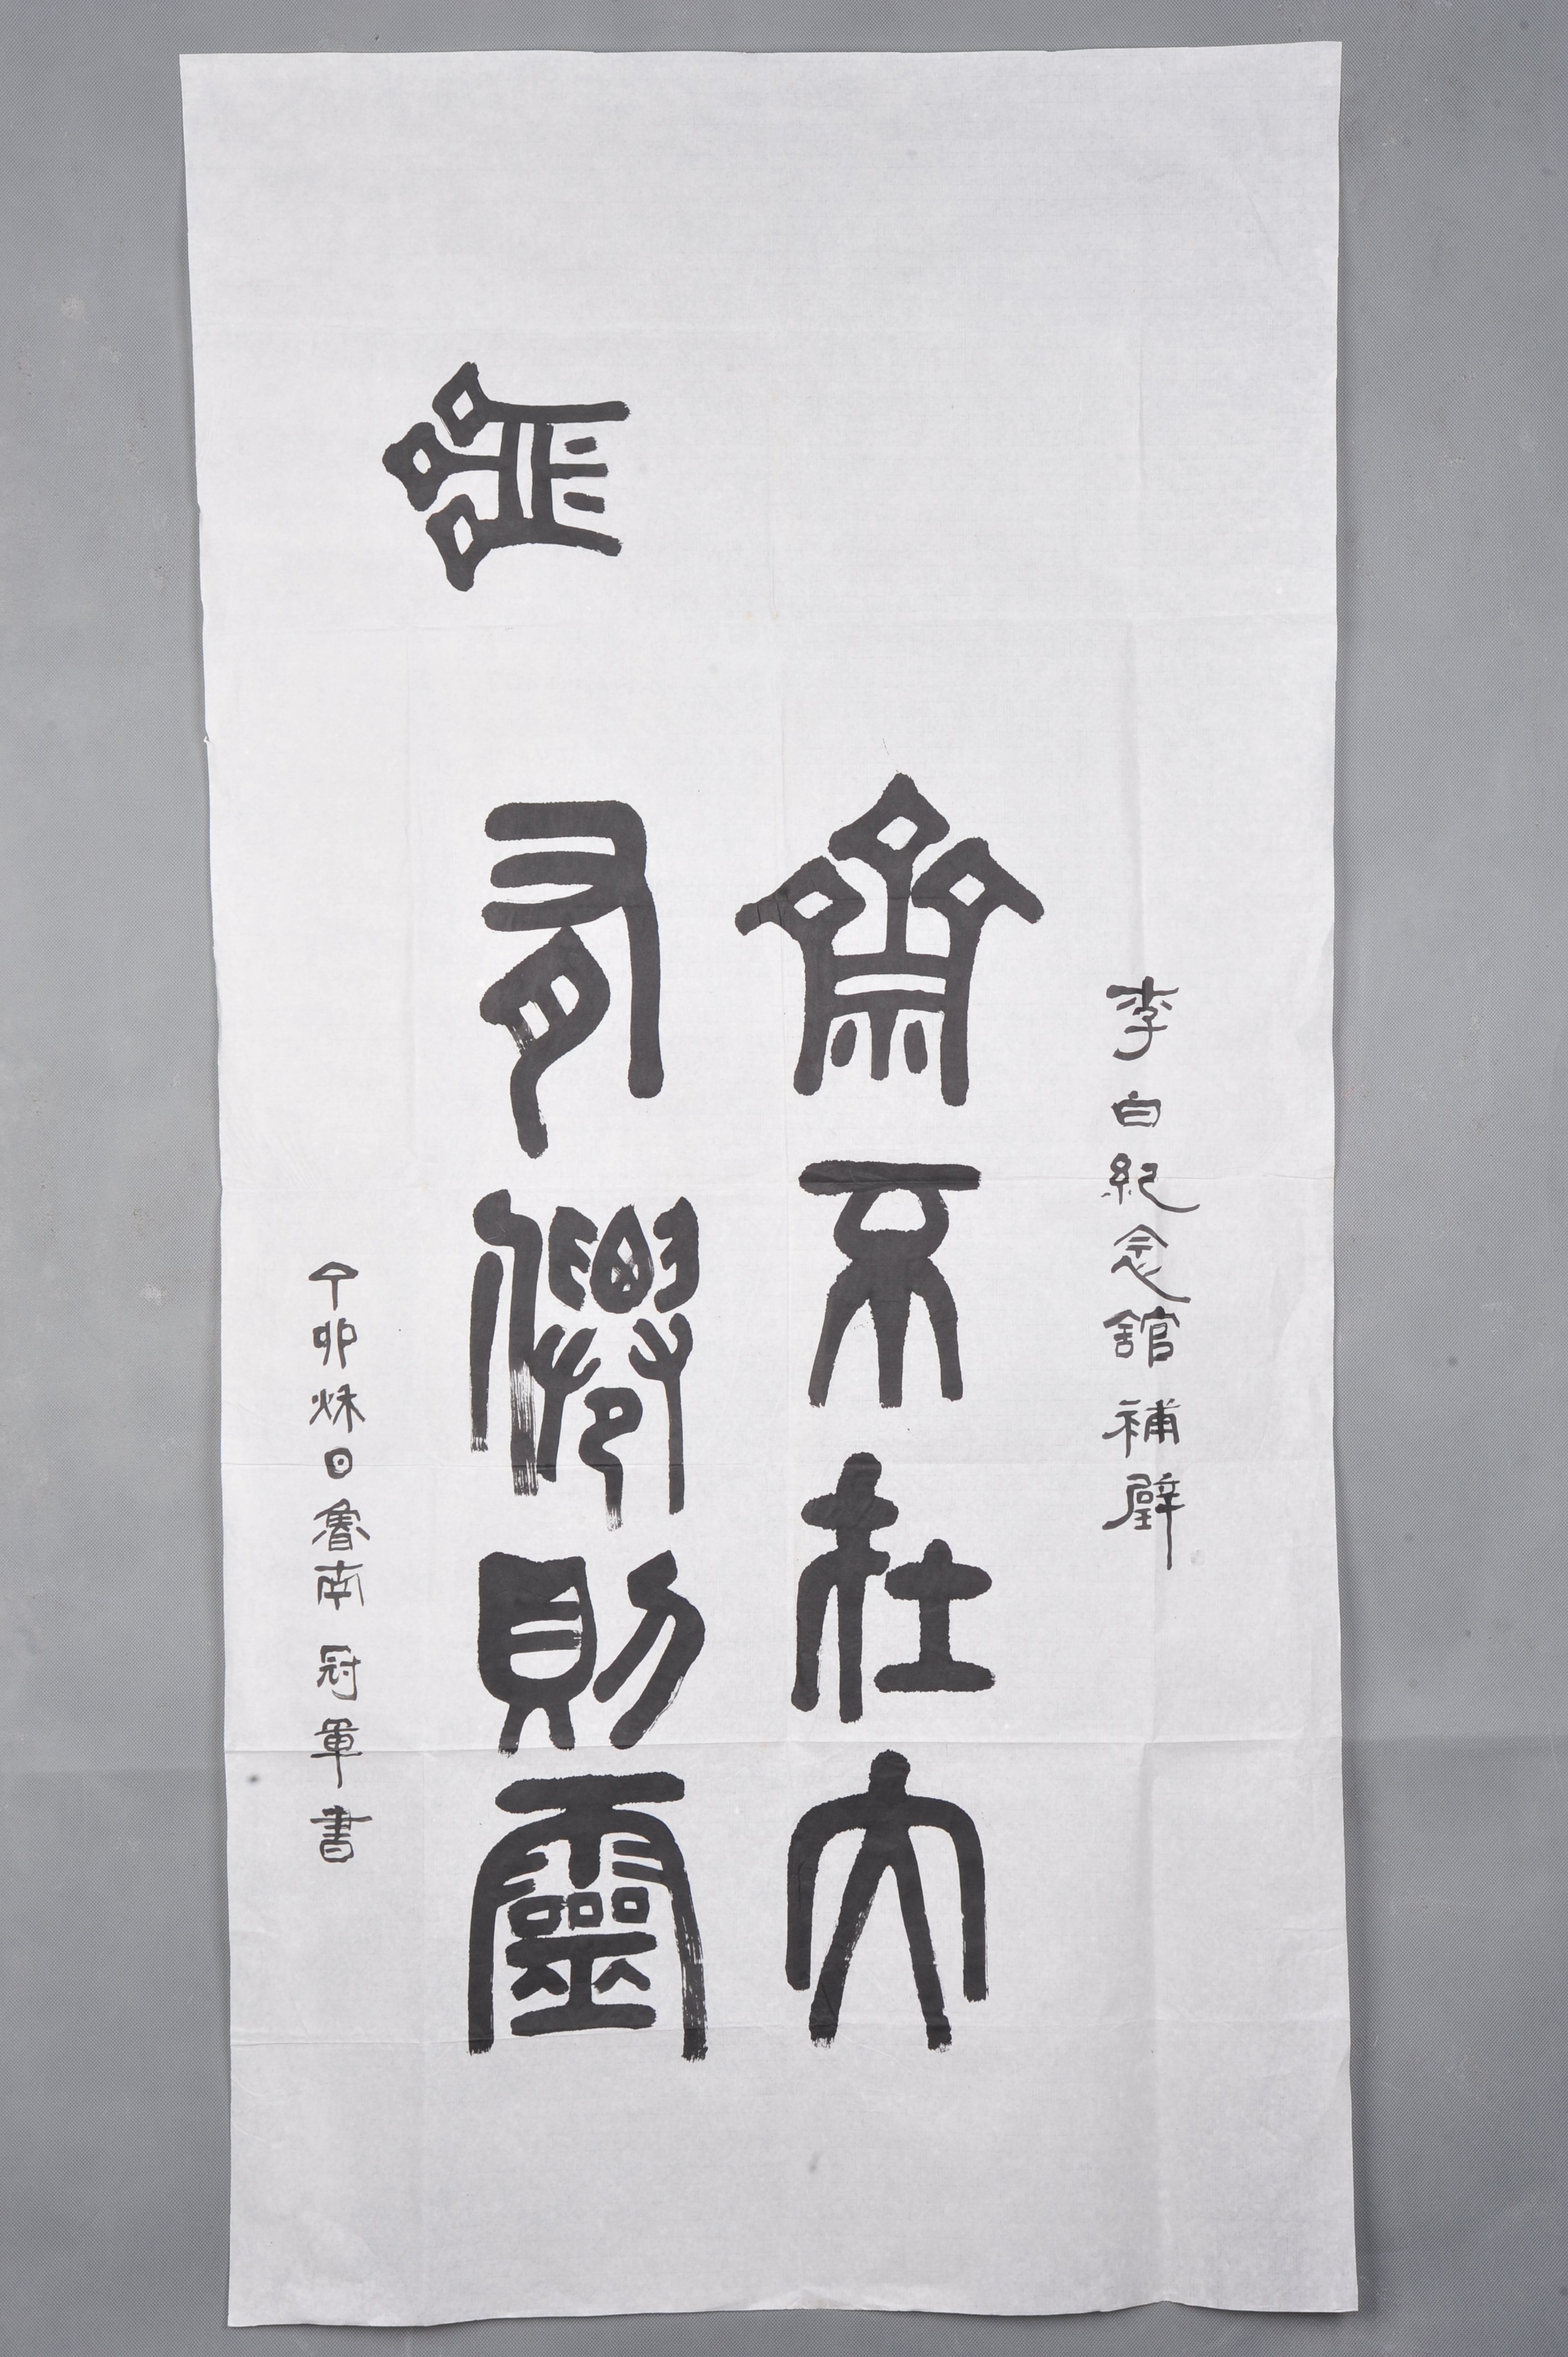 李白紀念館 補壁
齋不在大
齋
有僊則靈
丁卯秌日魯南 冠軍書